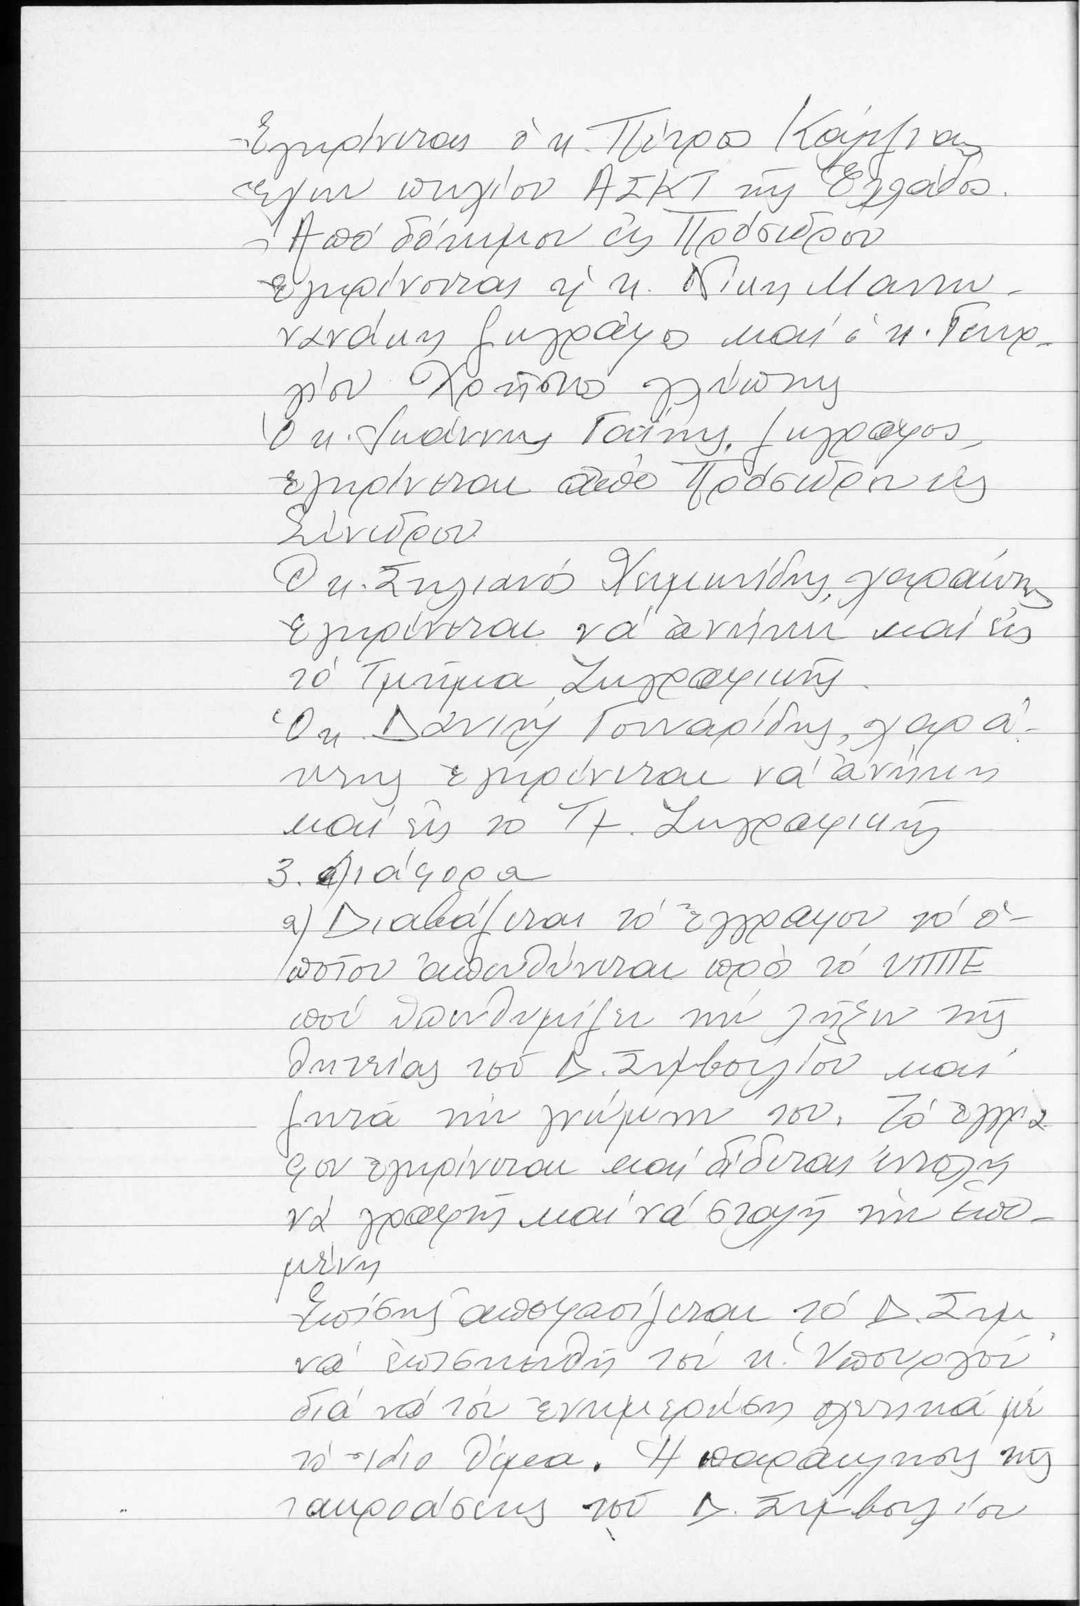 Ἐγκρίνεται ὁ κ. Πέτρος
πτυχίον ΑΣΚΤ τῆς Ἑλλάδος.
Ἀπό δόκιμον εἰς Πρόσεδρον
ἐγκρίνονται ἡ κ. Νίκη
ζωγράφος καί ὁ κ. Γεωρ-
γίου Χρῆστος γλύπτης
Ὁ κ. Ἰωάννης ζωγράφος,
ἐγκρίνεται ἀπό Πρόσεδρον εἰς
Σύνεδρον
Ὁ κ. Στυλιανός χαράκτης
ἐγκρίνεται νά ἀνήκει καί εἰς
τό Τμῆμα Ζωγραφικῆς.
Ὁ κ. Δανιήλ Γουναρίδης, χαρά-
κτης ἐγκρίνεται νά ἀνήκη
καί εἰς το Τμ. Ζωγραφικῆς
3. Διάφορα
α) Διαβάζεται τό ἔγγραφον τό ὁ-
ποῖον ἀπευθύνεται πρός τό ΥΠΠΕ
πού ὑπενθυμίζει τήν λῆξιν τῆς
θητείας τοῦ Δ. Συμβουλίου καί
ζητᾶ τήν γνώμην του. Τό ἔγγρα
φον ἐγκρίνεται καί δίδεται ἐντολή
νά γραφῆ καί νά σταλῆ τήν ἑπο-
μένη
Ἐπίσης ἀποφασίζεται τό Δ. Συμ
νά ἐπισκεφθῆ τόν κ. Ὑπουργόν
διά νά τόν ἐνημερώση σχετικά μέ
τό ἴδιο θέμα. Ἡ παράκλησις τῆς
ἀκροάσεως τοῦ Δ. Συμβουλίου